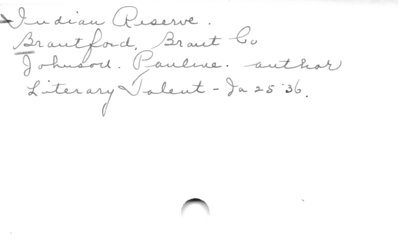 Indian Reserve.
Brantford, Brant Co
Johnson. Pauline. author
Literary Talent - Ja 25 '36.